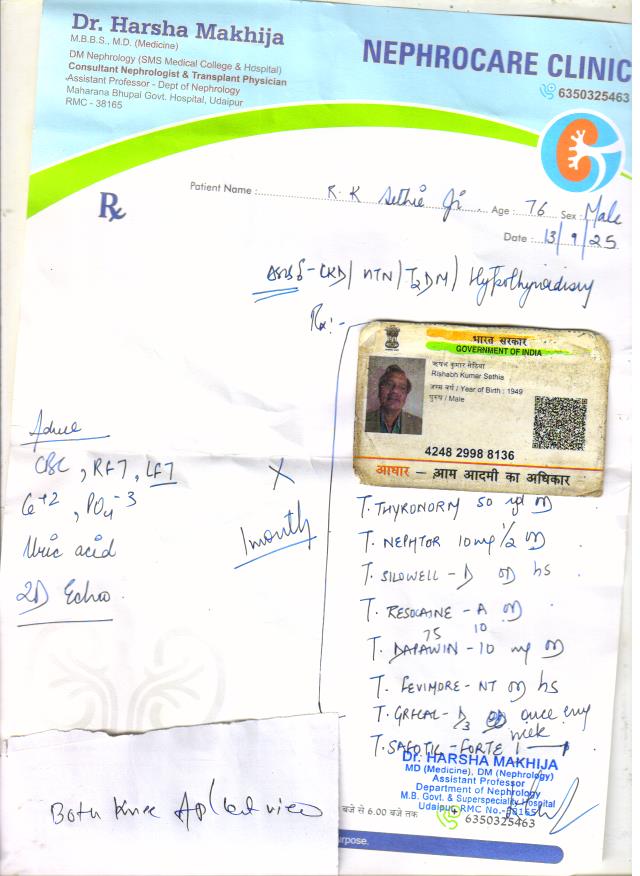 Dr. Harsha Makhija
M.B.B.S., M.D. (Medicine)
DM Nephrology (SMS Medical College & Hospital)
Consultant Nephrologist & Transplant Physician
Assistant Professor - Dept of Nephrology
Maharana Bhupal Govt. Hospital, Udaipur
RMC - 38165
NEPHROCARE CLINIC
6350325463
Rx
Patient Name : R. K Sethia Ji Age : 76 Sex : Male
Date : 13/9/25
CKD / HTN / T2DM / Hypothyroidism
Rx:-
भारत सरकार
GOVERNMENT OF INDIA
ऋषभ कुमार सेठिया
Rishabh Kumar Sethia
जन्म वर्ष / Year of Birth : 1949
पुरुष / Male
4248 2998 8136
आधार - आम आदमी का अधिकार
Advice
CBC, RFT, LFT
Ca+2, PO4-3
Uric acid
2D Echo
X
1 month
T. THYRONORM 50 OD
T. NEPHTOR 10mg 1/2 OD
T. SILOWELL - D OD hs
T. - A OD
75 10
T. DAPAWIN - 10 mg OD
T. FEVIMORE - NT OD hs
T. - D3 once every week
T. - FORTE 1
Dr. HARSHA MAKHIJA
MD (Medicine), DM (Nephrology)
Assistant Professor
Department of Nephrology
M.B. Govt. & Superspeciality Hospital
Udaipur RMC No.-38165
बजे से 6.00 बजे तक
6350325463
purpose.
Both Knee AP/Lat view